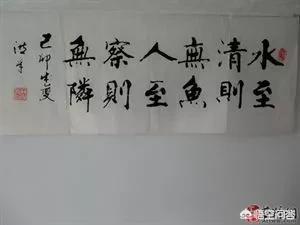 水至
清則
無魚
人至
察則
無隣
己卯夏
悟空问答